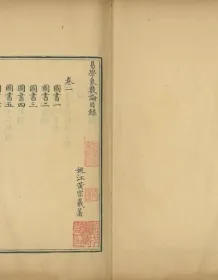 易學象數論目錄
姚江黃宗羲著
卷一
圖書一
圖書二
圖書三
圖書四
圖書五